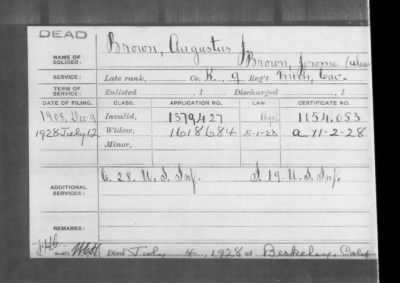 DEAD
NAME OF SOLDIER: Brown, Augustus J.
Brown, Jerome (alias
SERVICE: Late rank, Co. K, 9 Reg't Mich. Cav.
TERM OF SERVICE: Enlisted , 1 Discharged , 1
DATE OF FILING. CLASS. APPLICATION NO. LAW. CERTIFICATE NO.
1908, Dec 9 Invalid, 1379427 Age 1154.053
1928 July 12 Widow, 1618684 5-1-20 a 11-2-28
Minor,
ADDITIONAL SERVICES: C. 28. U.S. Inf. I. 19-U.S. Inf.
REMARKS:
Died July 4, 1928 at Berkeley, Calif